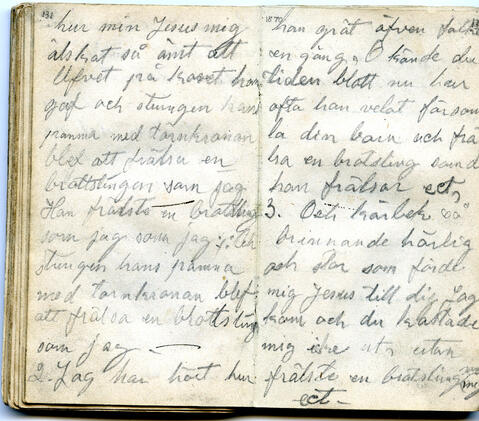 hur min Jesus mig
älskat så ömt att
lifvet på korset han
gaf och stungen hans
panna med törnkronan
blef att frälsa en
brottslingen som jag
Han frälste en brottsling
som jag som jag :,: och
stungen hans panna
med törnkronan blef
att frälsa en brottsling
som jag —
2. Jag har hört hur
han gråt äfven
en gång, O kände du
tiden blott nu hur
ofta han velat församla
din barn och frälsa
en brotsling som
han frälsar ect,
3. Och kärlek så
brinnande härlig
och stor som förde
mig Jesus till dig Jag
kom och du kastade
mig icke ut utan
frälste en brotsling
ect-